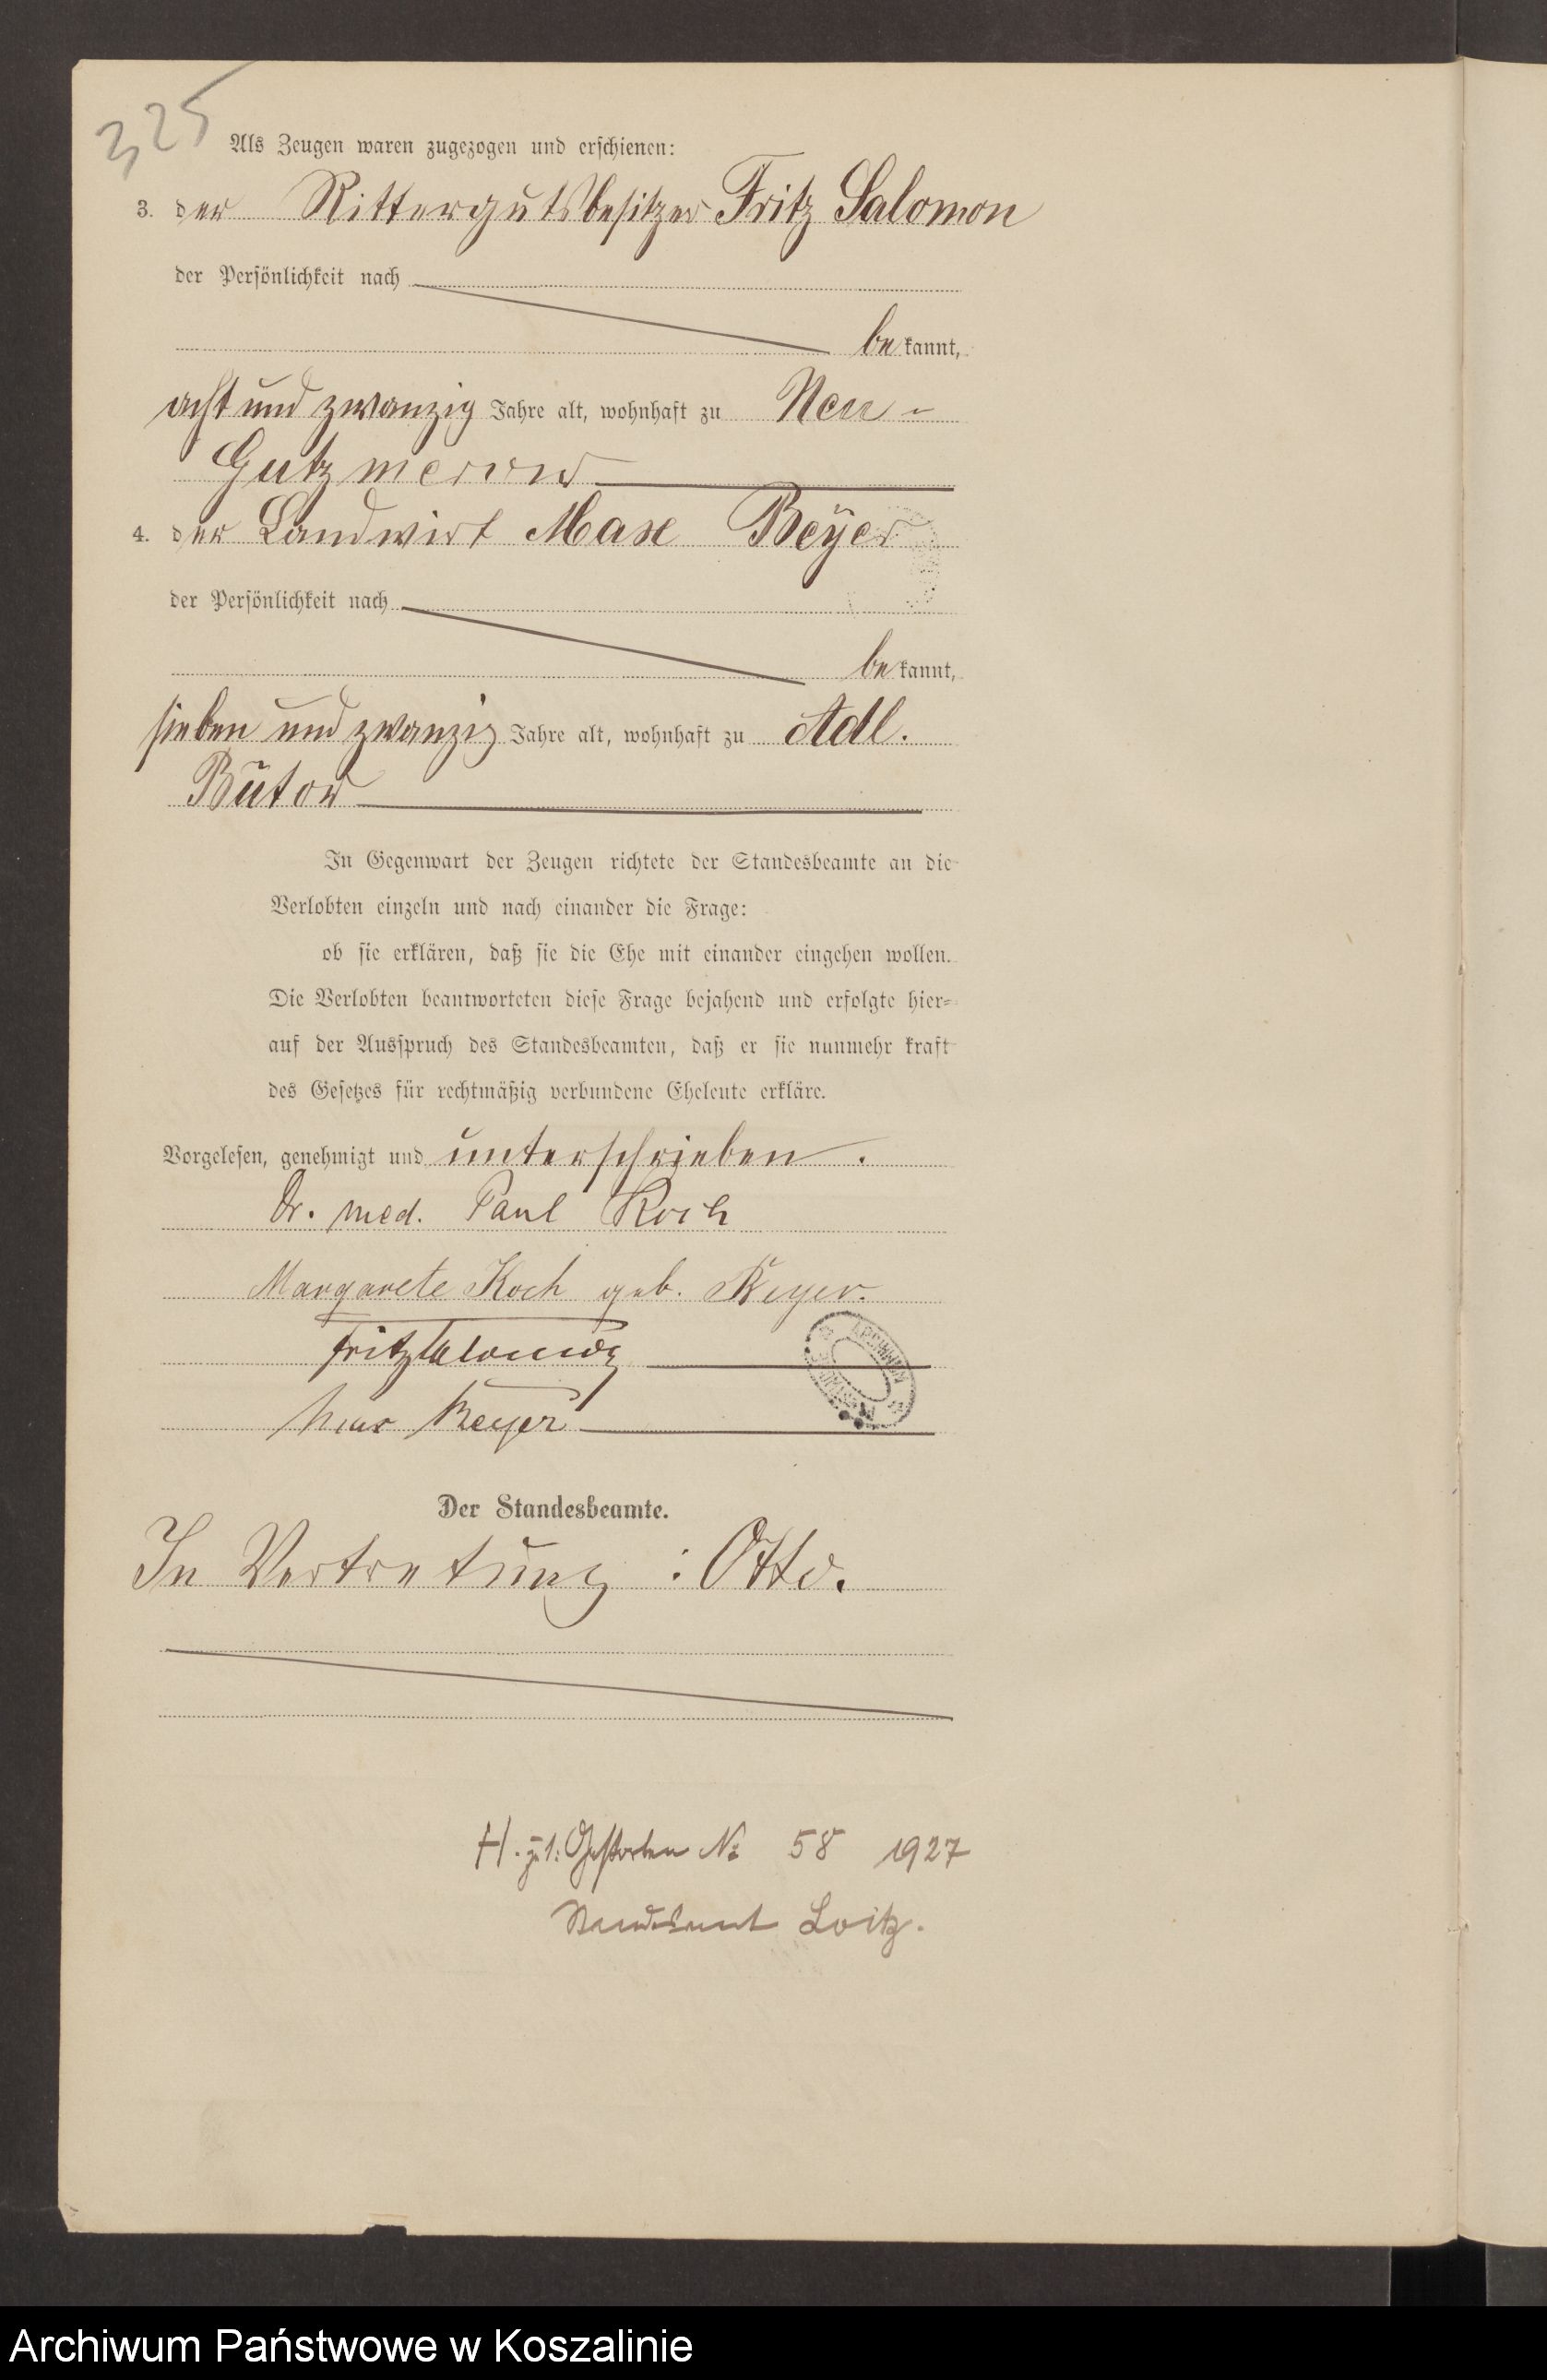 325
Als Zeugen waren zugezogen und erschienen:
3. der Rittergutsbesitzer Fritz Salomon
der Persönlichkeit nach
bekannt,
acht und zwanzig Jahre alt, wohnhaft zu Neu-
Gutzmerow
4. der Landwirt Max Beyer
der Persönlichkeit nach
bekannt,
sieben und zwanzig Jahre alt, wohnhaft zu Adl.
Bütow
In Gegenwart der Zeugen richtete der Standesbeamte an die
Verlobten einzeln und nach einander die Frage:
ob sie erklären, daß sie die Ehe mit einander eingehen wollen.
Die Verlobten beantworteten diese Frage bejahend und erfolgte hier-
auf der Ausspruch des Standesbeamten, daß er sie nunmehr kraft
des Gesetzes für rechtmäßig verbundene Eheleute erkläre.
Vorgelesen, genehmigt und unterschrieben.
Dr. med. Paul Koch
Margarete Koch geb. Beyer.
Fritz Salomon
Max Beyer
Der Standesbeamte.
In Vertretung: Otto.
H. z. 1: Gestorben № 58 1927
Standesamt Loitz.
Archiwum Państwowe w Koszalinie